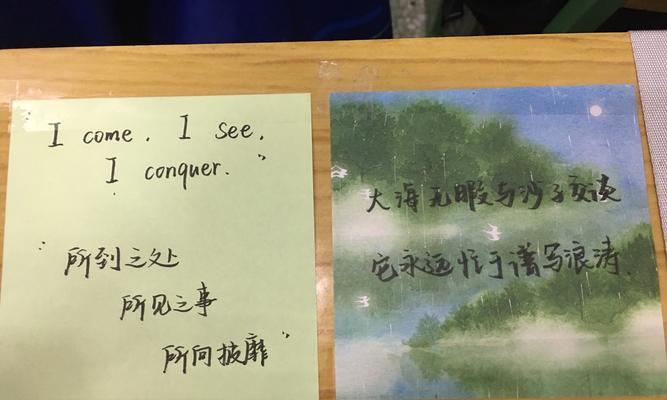 I come. I see.
I conquer."
"所到之处
所见之事
所向披靡"
大海无暇与沙子交谈
它永远忙于谱写浪涛.